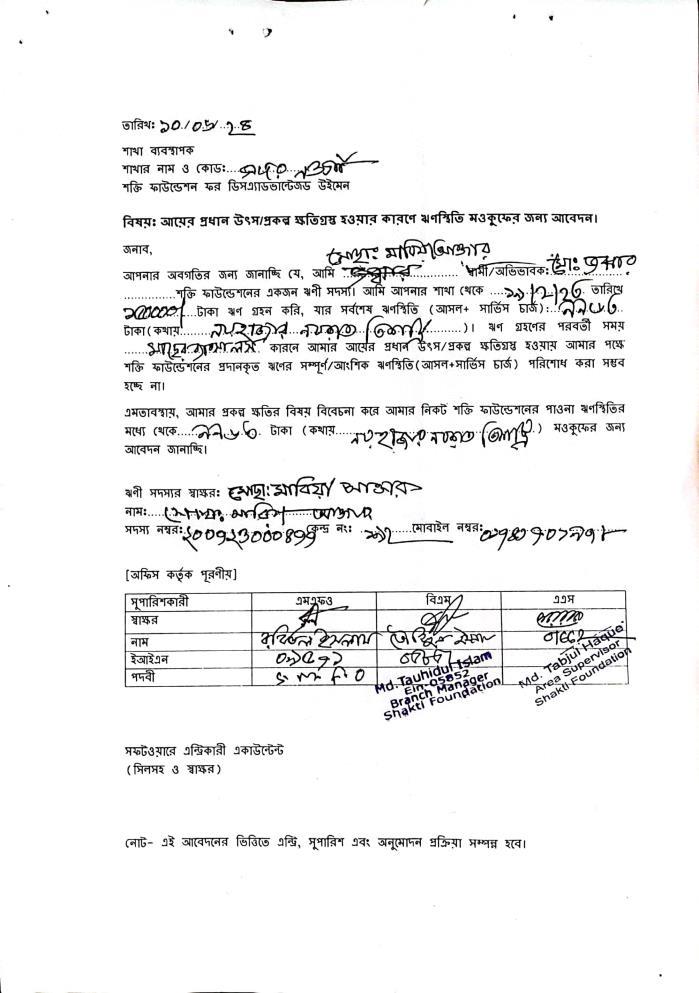 তারিখঃ ১০/০৫/২৪
শাখা ব্যবস্থাপক
শাখার নাম ও কোড:....
শক্তি ফাউন্ডেশন ফর ডিসএ্যাডভান্টেজড উইমেন
বিষয়: আয়ের প্রধান উৎস/প্রকল্প ক্ষতিগ্রস্থ হওয়ার কারণে ঋণস্থিতি মওকুফের জন্য আবেদন।
জনাব,
মোছাঃ মাবিয়া আক্তার
আপনার অবগতির জন্য জানাচ্ছি যে, আমি .... স্বামী/অভিভাবক: মোঃ
.... শক্তি ফাউন্ডেশনের একজন ঋণী সদস্য। আমি আপনার শাখা থেকে .... তারিখে
.... টাকা ঋণ গ্রহন করি, যার সর্বশেষ ঋণস্থিতি (আসল+ সার্ভিস চার্জ):..৯৯৮৩.
টাকা(কথায়....নয় হাজার নয়শত তিরাশি....)। ঋণ গ্রহণের পরবর্তী সময়
.... কারনে আমার আয়ের প্রধান উৎস/প্রকল্প ক্ষতিগ্রস্ত হওয়ায় আমার পক্ষে
শক্তি ফাউন্ডেশনের প্রদানকৃত ঋণের সম্পূর্ণ/আংশিক ঋণস্থিতি(আসল+সার্ভিস চার্জ) পরিশোধ করা সম্ভব
হচ্ছে না।
এমতাবস্থায়, আমার প্রকল্প ক্ষতির বিষয় বিবেচনা করে আমার নিকট শক্তি ফাউন্ডেশনের পাওনা ঋণস্থিতির
মধ্যে থেকে....৯৯৮৩. টাকা (কথায়....নয় হাজার নয়শত তিরাশি.) মওকুফের জন্য
আবেদন জানাচ্ছি।
ঋণী সদস্যর স্বাক্ষর: মোছাঃ মাবিয়া আক্তার
নাম:....মোছাঃ মাবিয়া আক্তার
সদস্য নম্বর: কেন্দ্র নং: ....মোবাইল নম্বর:
[অফিস কর্তৃক পূরণীয়]
সুপারিশকারী এমএফও বিএম এএস
স্বাক্ষর
নাম ইসলাম
ইআইএন
পদবী
Md.Tauhidul Islam
Ein-05852
Branch Manager
Shakti Foundation
Md. Tabjul Haque
Area Supervisor
Shakti Foundation
সফটওয়ারে এন্ট্রিকারী একাউন্টেন্ট
(সিলসহ ও স্বাক্ষর)
নোট- এই আবেদনের ভিত্তিতে এন্ট্রি, সুপারিশ এবং অনুমোদন প্রক্রিয়া সম্পন্ন হবে।